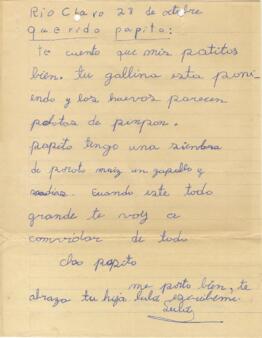 Rio Claro 28 de octubre
querido papito:
te cuento que mis patitos
bien. tu gallina esta poni
endo y los huevos parecen
pelotas de pinpon.
papito tengo una siembra
de poroto maiz un zapallo y
sandias. Cuando este todo
grande te voy a
convidar de todo
chao papito
me porto bien, te
abraza tu hija lula escribeme.
Lula